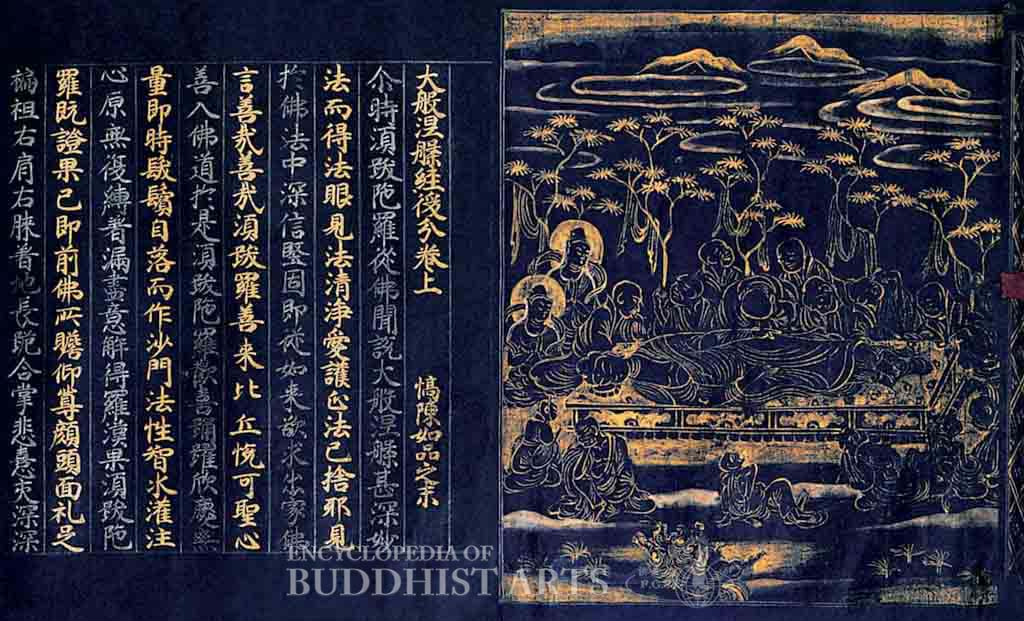 大般涅槃経後分卷上 憍陳如品之末
尒時須跋陀羅從佛聞說大般涅槃甚深妙
法而得法眼見法清淨愛護正法已捨邪見
於佛法中深信堅固即從如来欲求出家佛
言善哉善哉須跋羅善来比丘悅可聖心
善入佛道於是須跋陀羅歡喜踊躍欣慶無
量即時髮鬚自落而作沙門法性智水灌注
心原無復縛著漏盡意解得羅漢果須跋陀
羅既證果已即前佛所瞻仰尊顏頭面礼足
褊袒右肩右膝著地長跪合掌悲喜交深深
ENCYCLOPEDIA OF
BUDDHIST ARTS